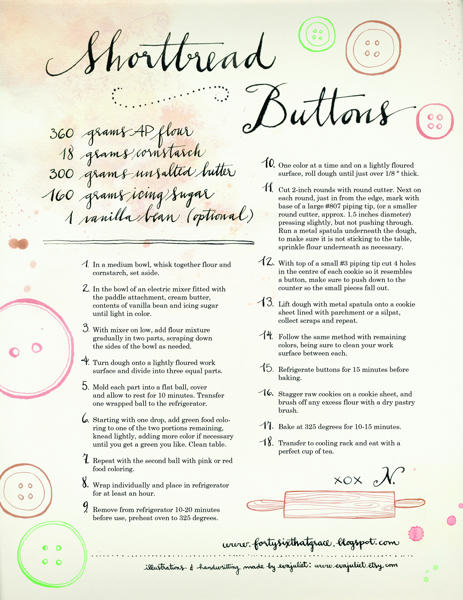 Shortbread
Buttons
360 grams AP flour
18 grams cornstarch
300 grams unsalted butter
160 grams icing sugar
1 vanilla bean (optional)
1. In a medium bowl, whisk together flour and
cornstarch, set aside.
2. In the bowl of an electric mixer fitted with
the paddle attachment, cream butter,
contents of vanilla bean and icing sugar
until light in color.
3. With mixer on low, add flour mixture
gradually in two parts, scraping down
the sides of the bowl as needed.
4. Turn dough onto a lightly floured work
surface and divide into three equal parts.
5. Mold each part into a flat ball, cover
and allow to rest for 10 minutes. Transfer
one wrapped ball to the refrigerator.
6. Starting with one drop, add green food colo-
ring to one of the two portions remaining,
knead lightly, adding more color if necessary
until you get a green you like. Clean table.
7. Repeat with the second ball with pink or red
food coloring.
8. Wrap individually and place in refrigerator
for at least an hour.
9. Remove from refrigerator 10-20 minutes
before use, preheat oven to 325 degrees.
10. One color at a time and on a lightly floured
surface, roll dough until just over 1/8 " thick.
11. Cut 2-inch rounds with round cutter. Next on
each round, just in from the edge, mark with
base of a large #807 piping tip, (or a smaller
round cutter, approx. 1.5 inches diameter)
pressing slightly, but not pushing through.
Run a metal spatula underneath the dough,
to make sure it is not sticking to the table,
sprinkle flour underneath as necessary.
12. With top of a small #3 piping tip cut 4 holes
in the centre of each cookie so it resembles
a button, make sure to push down to the
counter so the small pieces fall out.
13. Lift dough with metal spatula onto a cookie
sheet lined with parchment or a silpat,
collect scraps and repeat.
14. Follow the same method with remaining
colors, being sure to clean your work
surface between each.
15. Refrigerate buttons for 15 minutes before
baking.
16. Stagger raw cookies on a cookie sheet, and
brush off any excess flour with a dry pastry
brush.
17. Bake at 325 degrees for 10-15 minutes.
18. Transfer to cooling rack and eat with a
perfect cup of tea.
xox N.
www.fortysixthatgrace.blogspot.com
illustrations & handwriting made by evajuliet: www.evajuliet.etsy.com